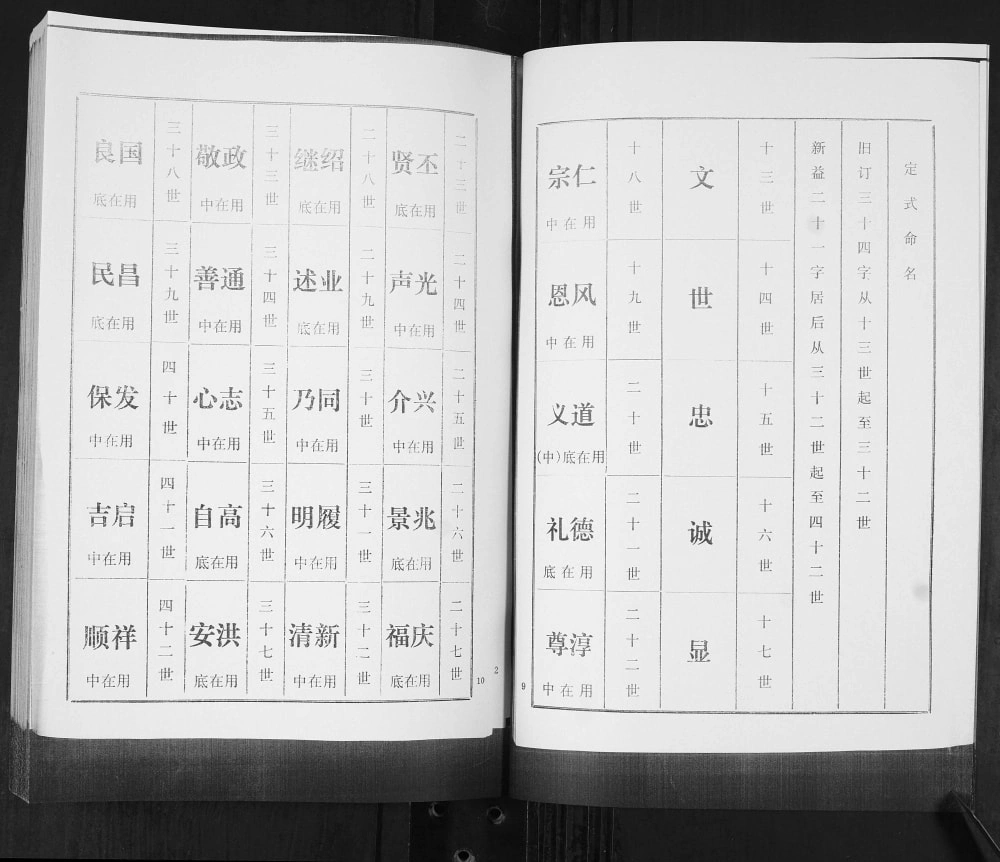 定式命名
旧订三十四字从十三世起至三十二世
新益二十一字居后从三十二世起至四十二世
十三世
文
十四世
世
十五世
忠
十六世
诚
十七世
显
十八世
仁宗
用在中
十九世
风恩
用在中
二十世
道义
用在底(中)
二十一世
德礼
用在底
二十二世
淳尊
用在中
9
二十三世
丕贤
用在底
二十四世
光声
用在中
二十五世
兴介
用在中
二十六世
兆景
用在底
二十七世
庆福
用在底
二十八世
绍继
用在底
二十九世
业述
用在底
三十世
同乃
用在中
三十一世
履明
用在中
三十二世
新清
用在中
三十三世
政敬
用在中
三十四世
通善
用在中
三十五世
志心
用在中
三十六世
高自
用在底
三十七世
洪安
用在底
三十八世
国良
用在底
三十九世
昌民
用在底
四十世
发保
用在中
四十一世
启吉
用在中
四十二世
祥顺
用在中
10
2